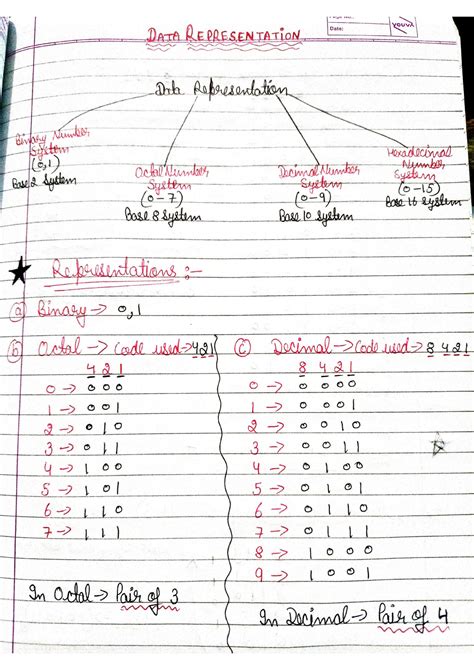 Date:
YOUVA
DATA REPRESENTATION
Data Representation
Binary Number System
(0,1)
Base 2 System
Octal Number System
(0-7)
Base 8 System
Decimal Number System
(0-9)
Base 10 System
Hexadecimal Number System
(0-15)
Base 16 System
★ Representations :-
(a) Binary → 0,1
(b) Octal → Code used → 421
4 2 1
0 → 0 0 0
1 → 0 0 1
2 → 0 1 0
3 → 0 1 1
4 → 1 0 0
5 → 1 0 1
6 → 1 1 0
7 → 1 1 1
In Octal → Pair of 3
(c) Decimal → Code used → 8 4 2 1
8 4 2 1
0 → 0 0 0 0
1 → 0 0 0 1
2 → 0 0 1 0
3 → 0 0 1 1
4 → 0 1 0 0
5 → 0 1 0 1
6 → 0 1 1 0
7 → 0 1 1 1
8 → 1 0 0 0
9 → 1 0 0 1
In Decimal → Pair of 4